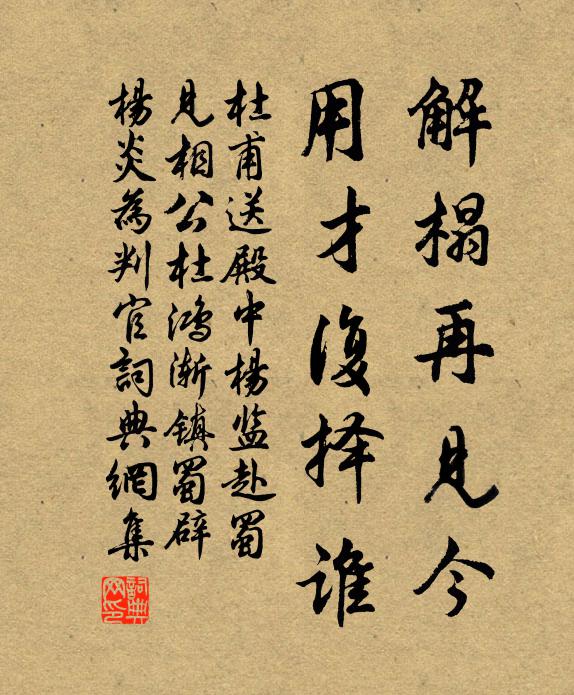 解榻再见今
用才復择谁
杜甫送殿中楊监赴蜀
見相公杜鴻漸鎮蜀辟
楊炎為判官詞典網集
詞典网印